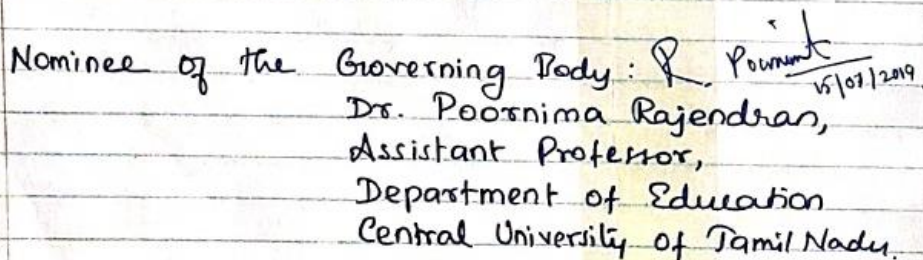 Nominee of the Governing Body : R. 
15/07/2019
Dr. Poornima Rajendran,
Assistant Professor,
Department of Education
Central University of Tamil Nadu.